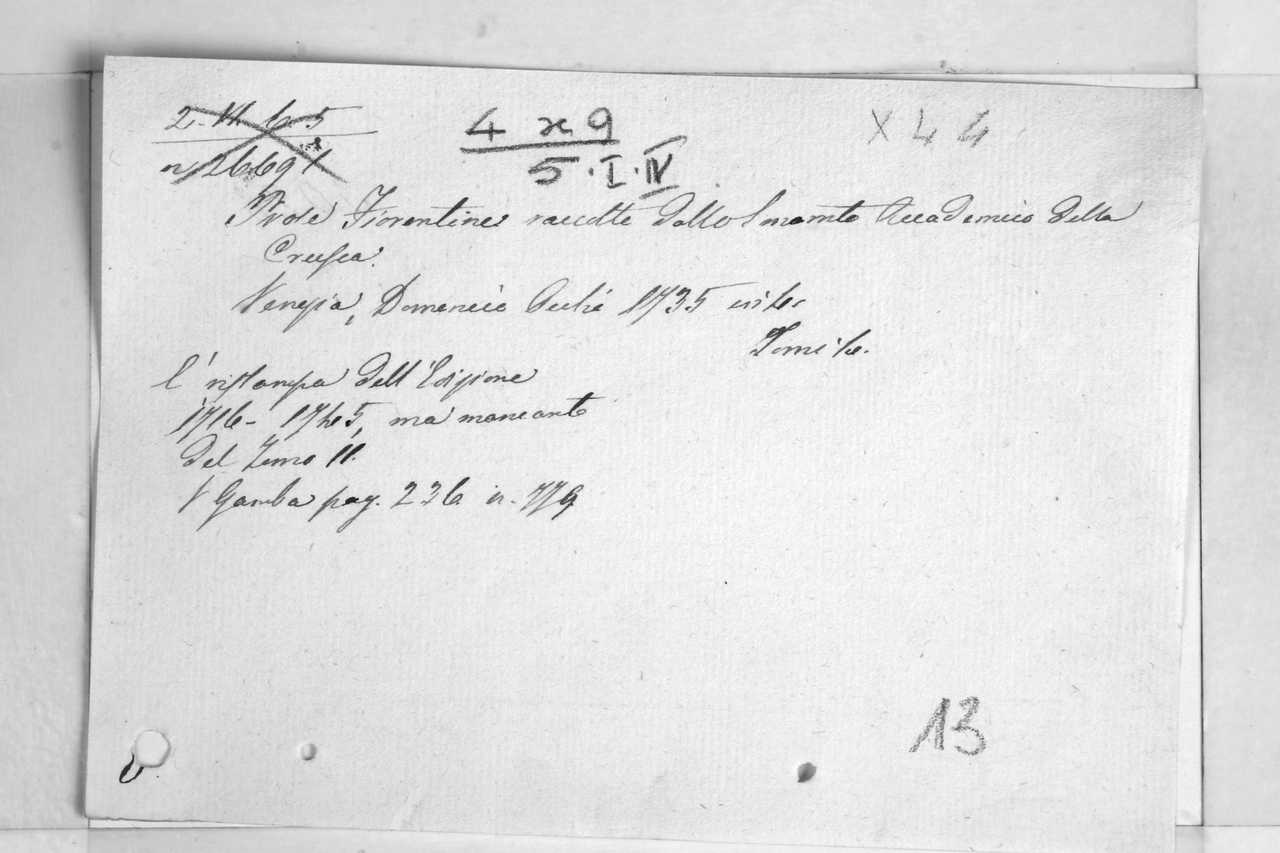 2. VI. 6. 5
n 26691
4 x 9
5 · I · IV
X 4 4
Prose Fiorentine raccolte dallo Smarrito Accademico della
Crusca.
Venezia, Domenico 1735 in 4°
Tomi 4.
L'ristampa dell'Edizione
1716 - 1745, ma mancante
del Tomo II.
V Gamba pag. 236 n. 779
13